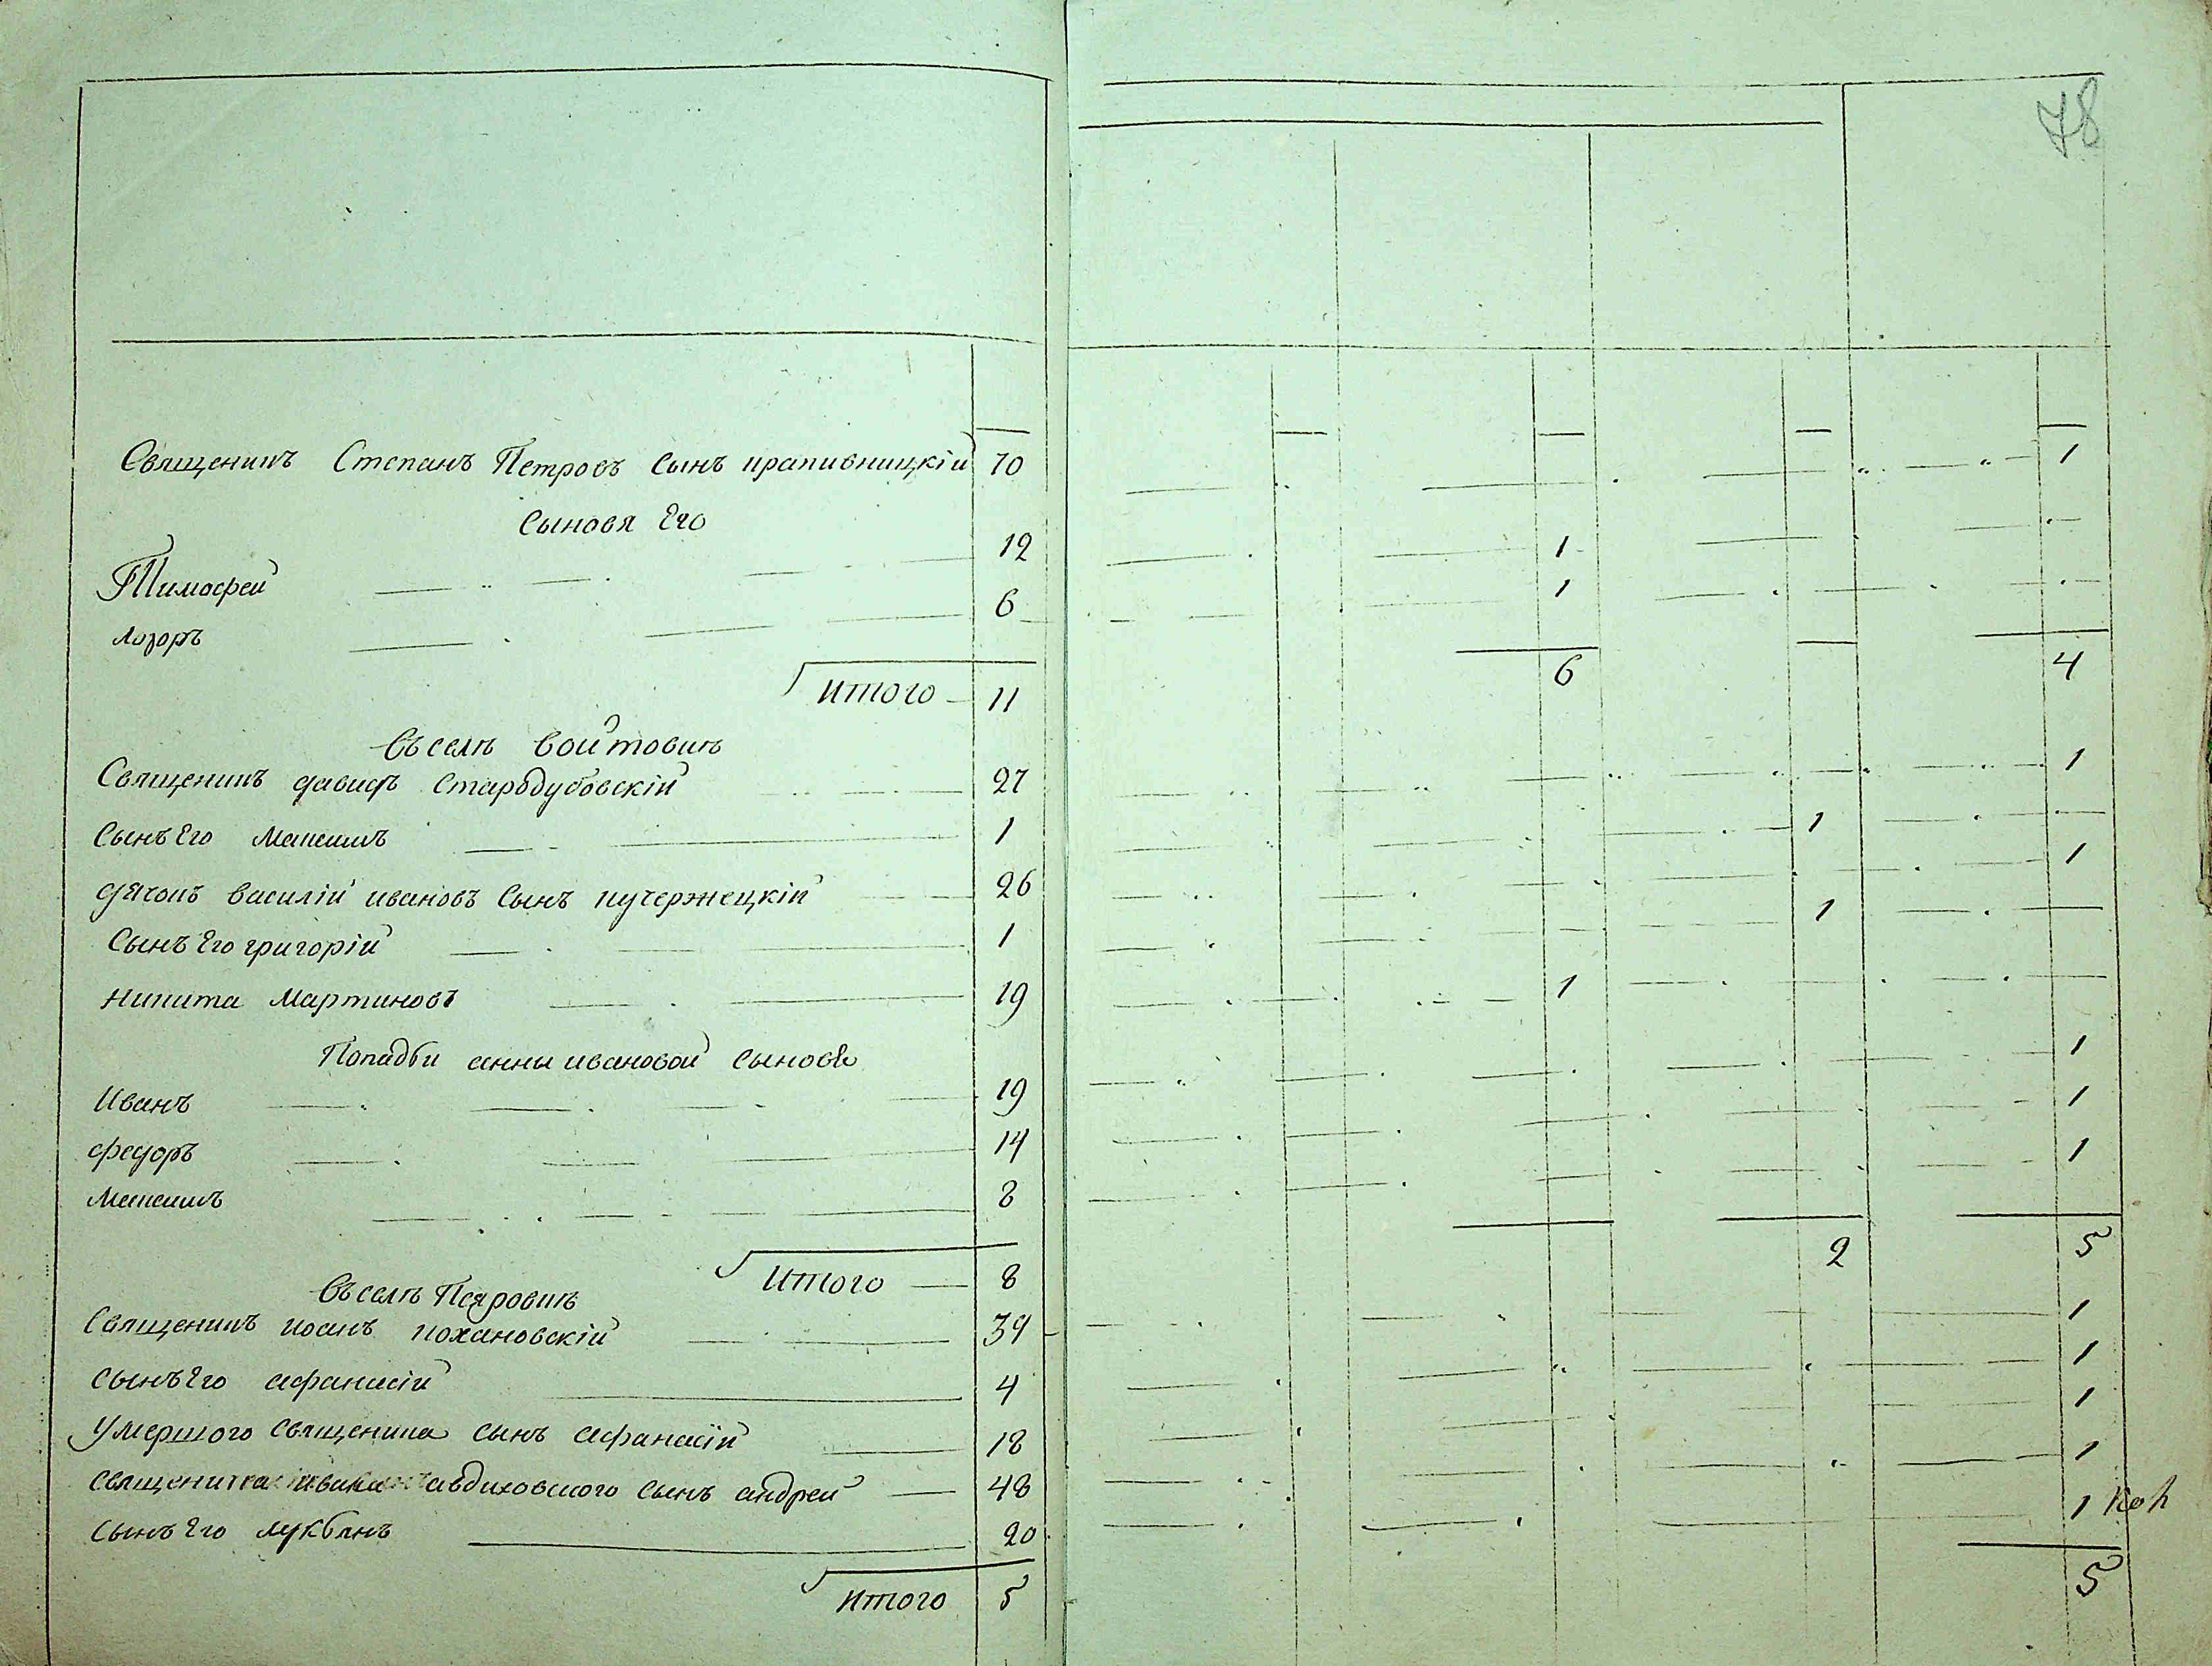 78
Священикъ Степанъ Петровъ сынъ крапивницкій 70 1
Сыновя Его
Тимофей 12 1
Лазоръ 6 1
Итого 11 6 4
Въ селѣ Войтовкѣ
Священикъ давидъ Стародубовскій 27 1
Сынъ Его Максимъ 1 1
дячокъ василій ивановъ Сынъ кучержецкій 26 1
Сынъ Его григорій 1 1
Никита Мартиновъ 19 1
Попадьи анны ивановой сыновя
Иванъ 19 1
федоръ 14 1
Максимъ 8 1
Итого 8 2 5
Въ селѣ
Священикъ иоанъ кохановскій 39 1
сынъ Его афанасій 4 1
Умершого Священика сынъ афанасій 18 1
Священика ивана авдиховского сынъ андрей 48 1
Сынъ Его лукьянъ 20 1
Итого 5 5